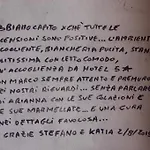 BBIAMO CAPITO XCHÈ TUTTE LE
CENSIONI SONO POSITIVE... L'AMBIENTE
COGLIENTE, BIANCHERIA PULITA, STAN
LITISSIMA CON LETTO COMODO,
N'ACCOGLIENZA DA HOTEL 5*
ON MARCO SEMPRE ATTENTO E PREMUROSO
EI NOSTRI RIGUARDI... SENZA PARLARE
I ARIANNA CON LE SUE COLAZIONI E
E SUE MARMELLATE... E UNA CURA
EI DETTAGLI FAVOLOSA...
GRAZIE STEFANO E KATIA 2/9/201